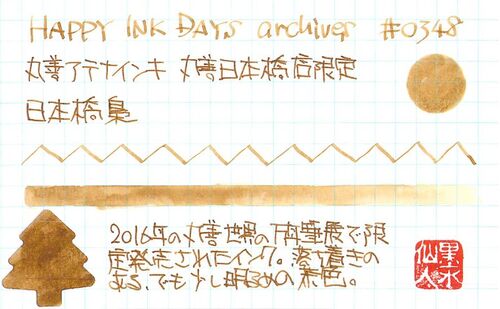 HAPPY INK DAYS archives #0348
丸善アテナインキ 丸善日本橋店限定
日本橋梟
2016年の丸善世界の万年筆展で限
定発売されたインク。落ち着きの
ある、でも少し明るめの茶色。
黒水
仙人